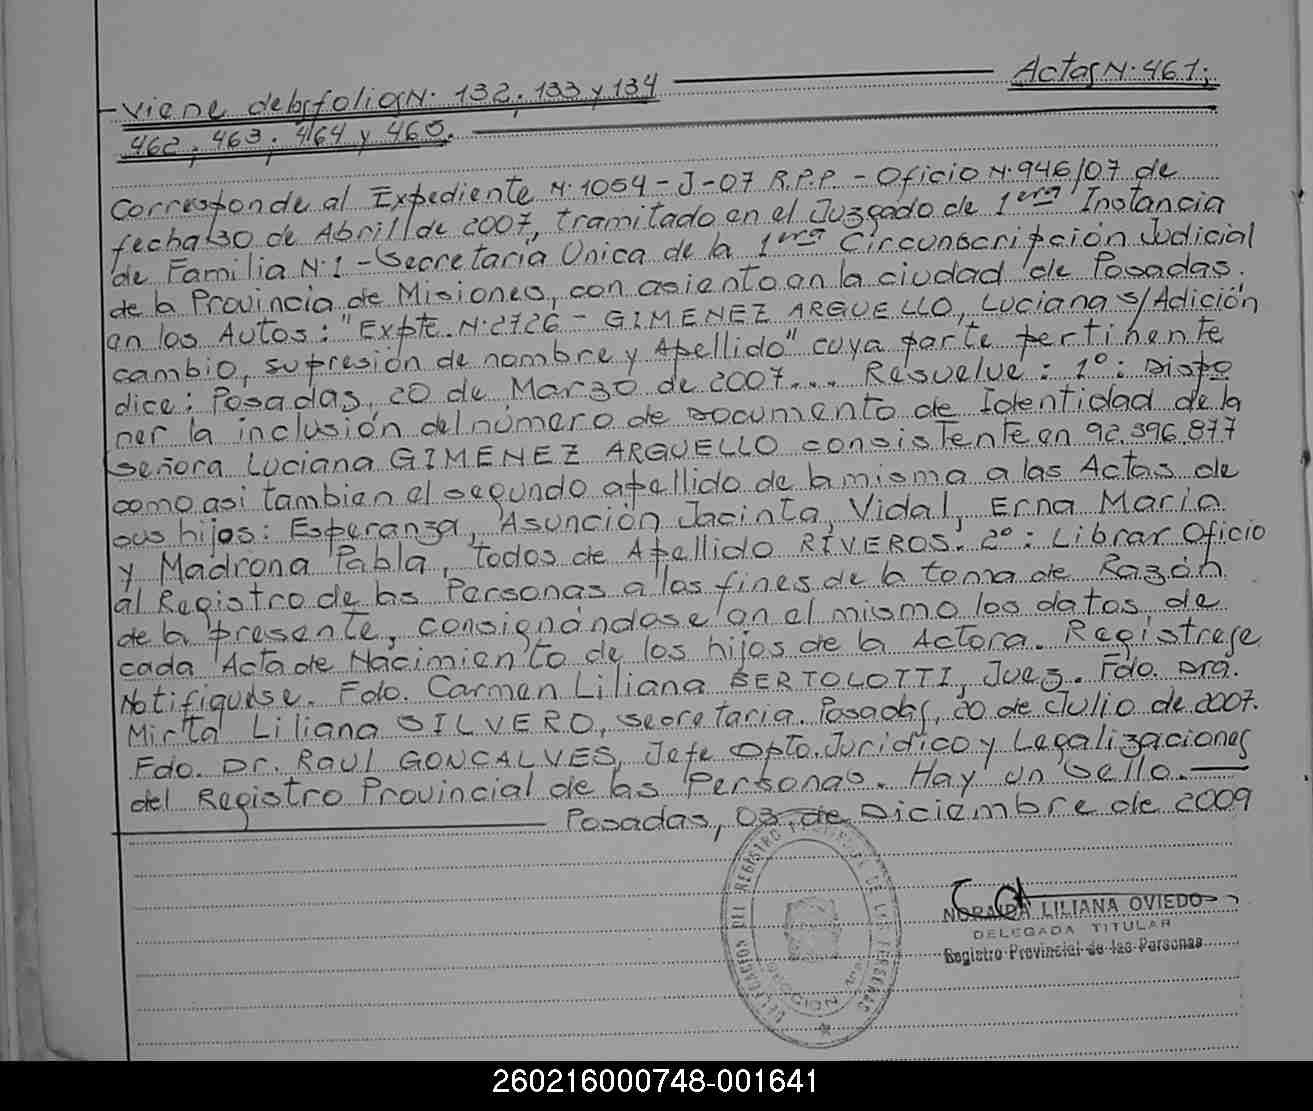 Viene de los folios N. 132, 133 y 134 Actas N. 461;
462; 463; 464 y 465.
Corresponde al Expediente N. 1054 - J - 07 R.P.P. - Oficio N. 946/07 de
fecha 30 de Abril de 2007, tramitado en el Juzgado de 1era Instancia
de Familia N. 1 - Secretaria Unica de la 1era Circunscripción Judicial
de la Provincia de Misiones, con asiento en la ciudad de Posadas.
en los Autos: "Expte. N. 2726 - GIMENEZ ARGUELLO, Luciana s/Adición
cambio, supresión de nombre y Apellido" cuya parte pertinente
dice: Posadas, 20 de Marzo de 2007... Resuelve: 1º: Dispo
ner la inclusión del número de Documento de Identidad de la
Señora Luciana GIMENEZ ARGUELLO consistente en 92.396.877
como asi tambien el segundo apellido de la misma a las Actas de
sus hijos: Esperanza, Asunción Jacinta, Vidal, Erna Maria
y Madrona Pabla, todos de Apellido RIVEROS. 2º: Librar Oficio
al Registro de las Personas a los fines de la toma de Razón
de la presente, consignándose en el mismo los datos de
cada Acta de Nacimiento de los hijos de la Actora. Registrese
Notifiquese. Fdo. Carmen Liliana BERTOLOTTI, Juez. Fdo. Dra.
Mirta Liliana SILVERO, secretaria. Posadas, 20 de Julio de 2007.
Fdo. Dr. Raul GONCALVES, Jefe Dpto. Juridico y Legalizaciones
del Registro Provincial de las Personas. Hay un sello.
Posadas, 03 de Diciembre de 2009
NORAIDA LILIANA OVIEDO
DELEGADA TITULAR
Registro Provincial de las Personas
260216000748-001641